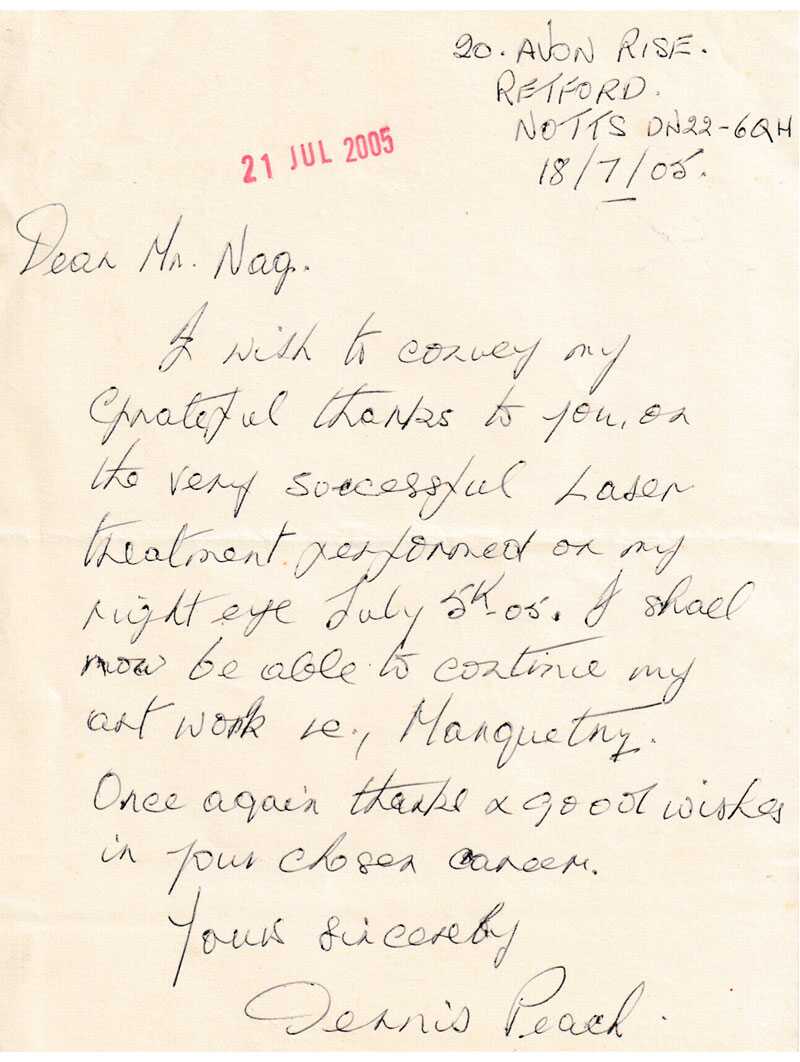 20. AVON RISE.
RETFORD.
NOTTS DN22-6QH
21 JUL 2005
18/7/05.
Dear Mr. Nag.
I wish to convey my
Grateful thanks to you, on
the very successful Laser
treatment performed on my
right eye July 5th-05. I shall
now be able to continue my
art work ie., Marquetry.
Once again thanks & good wishes
in your chosen career.
Yours sincerely
Dennis Peach.